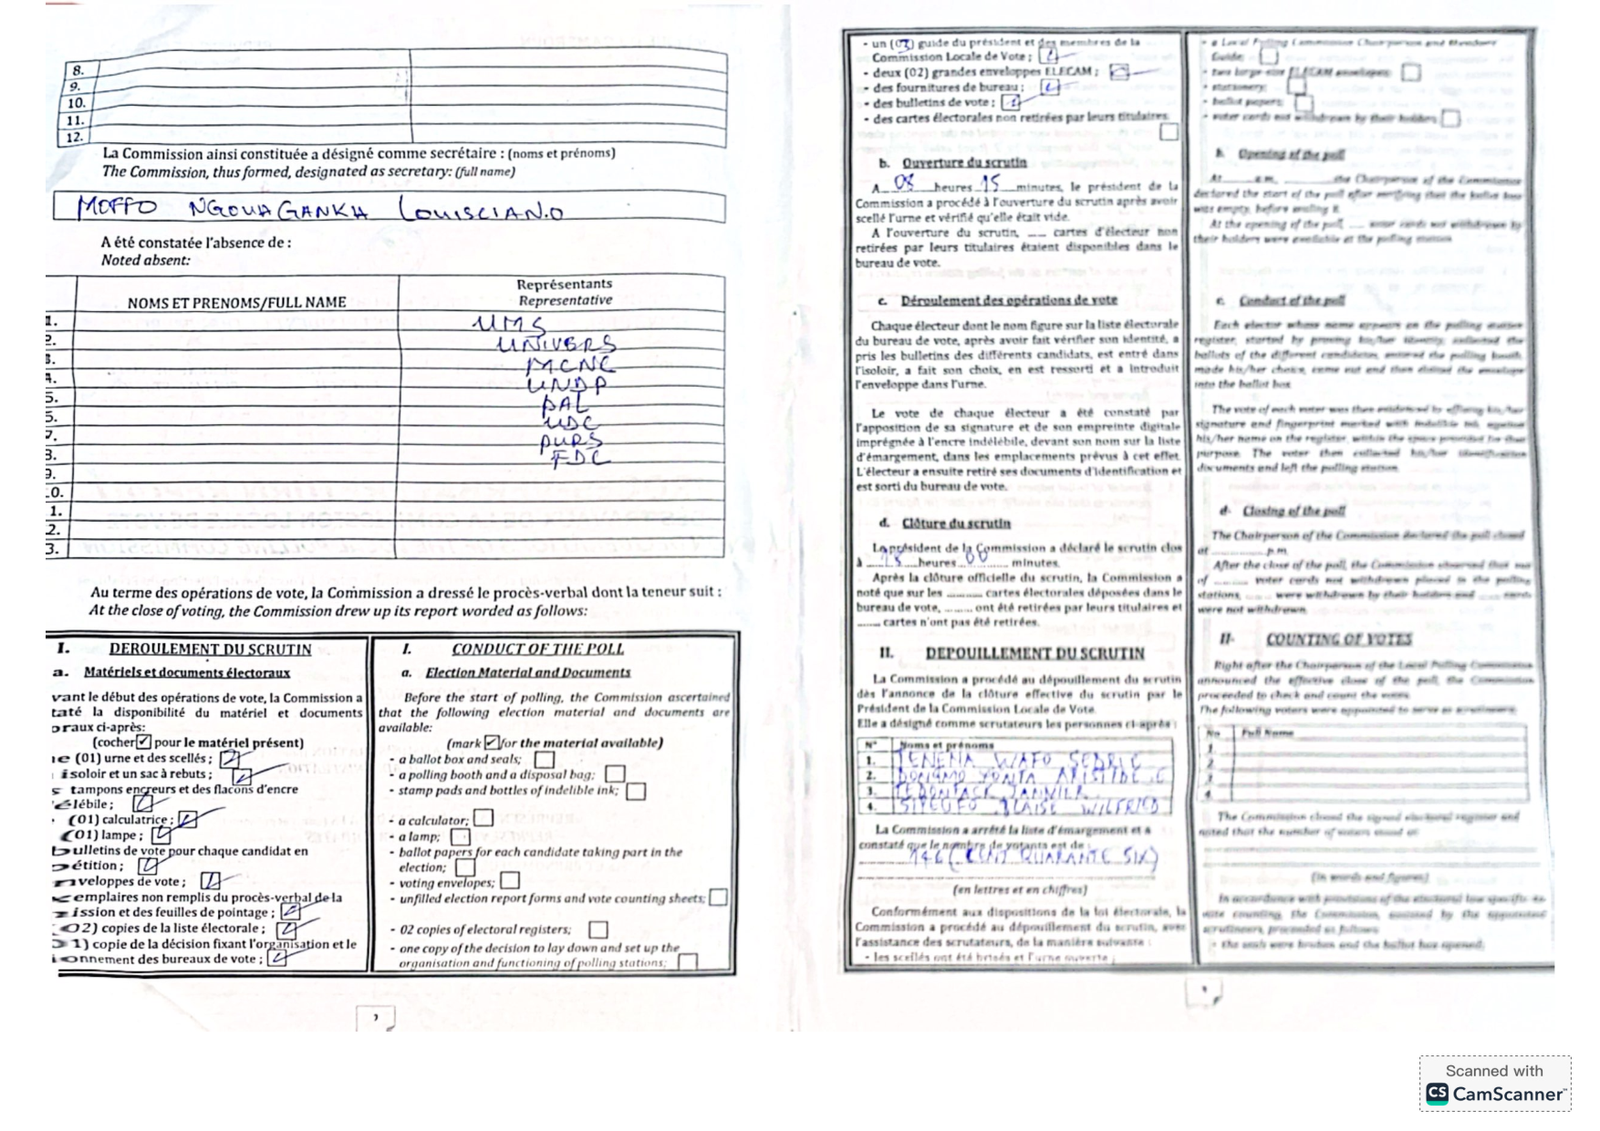 8.
9.
10.
11.
12.
La Commission ainsi constituée a désigné comme secrétaire : (noms et prénoms)
The Commission, thus formed, designated as secretary: (full name)
MOFFO NGOUAGANKH LOUISCIANO
A été constatée l'absence de :
Noted absent:
NOMS ET PRENOMS/FULL NAME
Représentants
Representative
1. UMS
2. UNIVERS
3. MCNC
4. UNDP
5. PAL
5. UDC
7. PURS
3. FDC
9.
.0.
1.
2.
3.
Au terme des opérations de vote, la Commission a dressé le procès-verbal dont la teneur suit :
At the close of voting, the Commission drew up its report worded as follows:
I. DEROULEMENT DU SCRUTIN
a. Matériels et documents électoraux
vant le début des opérations de vote, la Commission a
taté la disponibilité du matériel et documents
oraux ci-après:
(cocher pour le matériel présent)
(01) urne et des scellés ;
isoloir et un sac à rebuts ;
tampons encreurs et des flacons d'encre
élébile ;
(01) calculatrice ;
(01) lampe ;
bulletins de vote pour chaque candidat en
étition ;
veloppes de vote ;
emplaires non remplis du procès-verbal de la
ission et des feuilles de pointage ;
02) copies de la liste électorale ;
1) copie de la décision fixant l'organisation et le
ionnement des bureaux de vote ;
I. CONDUCT OF THE POLL
a. Election Material and Documents
Before the start of polling, the Commission ascertained
that the following election material and documents are
available:
(mark for the material available)
- a ballot box and seals;
- a polling booth and a disposal bag;
- stamp pads and bottles of indelible ink;
- a calculator;
- a lamp;
- ballot papers for each candidate taking part in the
election;
- voting envelopes;
- unfilled election report forms and vote counting sheets;
- 02 copies of electoral registers;
- one copy of the decision to lay down and set up the
organisation and functioning of polling stations;
- un (03) guide du président et des membres de la
Commission Locale de Vote ;
- deux (02) grandes enveloppes ELECAM ;
- des fournitures de bureau ;
- des bulletins de vote ;
- des cartes électorales non retirées par leurs titulaires
b. Ouverture du scrutin
A 08 heures 15 minutes, le président de la
Commission a procédé à l'ouverture du scrutin après avoir
scellé l'urne et vérifié qu'elle était vide.
A l'ouverture du scrutin, ...... cartes d'électeur non
retirées par leurs titulaires étaient disponibles dans le
bureau de vote.
c. Déroulement des opérations de vote
Chaque électeur dont le nom figure sur la liste électorale
du bureau de vote, après avoir fait vérifier son identité, a
pris les bulletins des différents candidats, est entré dans
l'isoloir, a fait son choix, en est ressorti et a introduit
l'enveloppe dans l'urne.
Le vote de chaque électeur a été constaté par
l'apposition de sa signature et de son empreinte digitale
imprégnée à l'encre indélébile, devant son nom sur la liste
d'émargement, dans les emplacements prévus à cet effet.
L'électeur a ensuite retiré ses documents d'identification et
est sorti du bureau de vote.
d. Clôture du scrutin
Le président de la Commission a déclaré le scrutin clos
à 18 heures 00 minutes.
Après la clôture officielle du scrutin, la Commission a
noté que sur les ............ cartes électorales déposées dans le
bureau de vote, ......... ont été retirées par leurs titulaires et
....... cartes n'ont pas été retirées.
II. DEPOUILLEMENT DU SCRUTIN
La Commission a procédé au dépouillement du scrutin
dès l'annonce de la clôture effective du scrutin par le
Président de la Commission Locale de Vote.
Elle a désigné comme scrutateurs les personnes ci-après :
N° Noms et prénoms
1. TENEMA WAFO SEDRIC
2. YONTA ARISTIDE C
3. TEDONFACK
4. BLAISE WILFRIED
La Commission a arrêté la liste d'émargement et a
constaté que le nombre de votants est de :
146 (CENT QUARANTE SIX)
(en lettres et en chiffres)
Conformément aux dispositions de la loi électorale, la
Commission a procédé au dépouillement du scrutin, avec
l'assistance des scrutateurs, de la manière suivante :
- les scellés ont été brisés et l'urne ouverte ;
- a Local Polling Commission Chairperson and Members
Guide;
- two large-size ELECAM envelopes;
- stationery;
- ballot papers;
- voter cards not withdrawn by their holders
b. Opening of the poll
At ...... a.m, ...... the Chairperson of the Commission
declared the start of the poll after verifying that the ballot box
was empty, before sealing it.
At the opening of the poll, .... voter cards not withdrawn by
their holders were available at the polling station
c. Conduct of the poll
Each elector whose name appears on the polling station
register, started by proving his/her identity, collected the
ballots of the different candidates, entered the polling booth,
made his/her choice, came out and then slotted the envelope
into the ballot box
The vote of each voter was then evidenced by affixing his/her
signature and fingerprint marked with indelible ink, against
his/her name on the register, within the space provided for that
purpose. The voter then collected his/her identification
documents and left the polling station.
d- Closing of the poll
The Chairperson of the Commission declared the poll closed
at ............ p.m.
After the close of the poll, the Commission observed that out
of ....... voter cards not withdrawn placed in the polling
stations, ...... were withdrawn by their holders and ...... cards
were not withdrawn.
II- COUNTING OF VOTES
Right after the Chairperson of the Local Polling Commission
announced the effective close of the poll, the Commission
proceeded to check and count the votes.
The following voters were appointed to serve as scrutineers.
No Full Name
1.
2.
3.
4.
The Commission closed the signed electoral register and
noted that the number of voters stood at:
(in words and figures)
In accordance with provisions of the electoral law specific to
vote counting, the Commission, assisted by the appointed
scrutineers, proceeded as follows:
- the seals were broken and the ballot box opened;
Scanned with
CS CamScanner